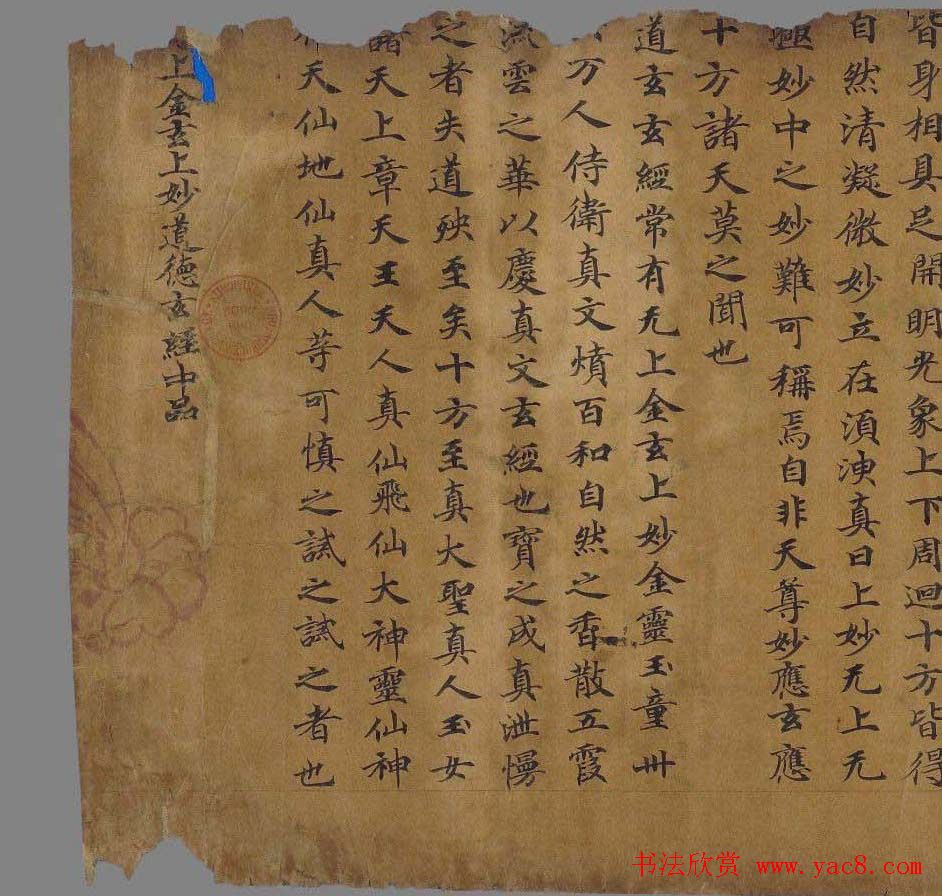 皆身相具足開明光象上下周迴十方皆得
自然清凝微妙立在澒洞真曰上妙无上无
極妙中之妙難可稱焉自非天尊妙應玄應
十方諸天莫之聞也
道玄玄經常有无上金玄上妙金靈玉童卅
万人侍衛真文燌百和自然之香散五霞
流雲之華以慶真文玄經也寶之成真泄慢
之者失道殃至矣十方至真大聖真人玉女
天上章天王天人真仙飛仙大神靈仙神
天仙地仙真人等可慎之試之試之者也
上金玄上妙道德玄經中品
书法欣赏 www.yac8.com